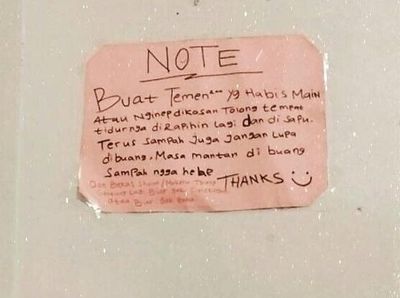 NOTE
Buat Temen" yg Habis Main
Atau Nginep dikosan Tolong tempat
tidurnya dirapihin lagi dan di sapu.
Terus sampah juga jangan lupa
dibuang, Masa mantan di buang
Sampah ngga hehe
THANKS
Dan Bekas
Biar
atau Biar